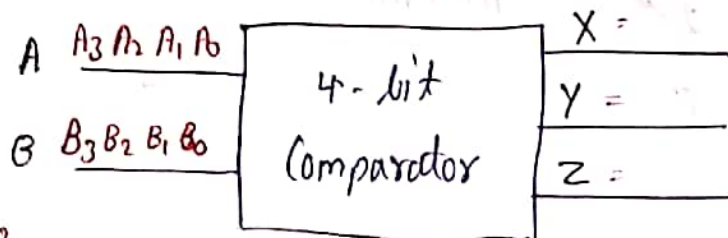 A A3 A2 A1 A0
B B3 B2 B1 B0
4-bit
Comparator
X =
Y =
Z =